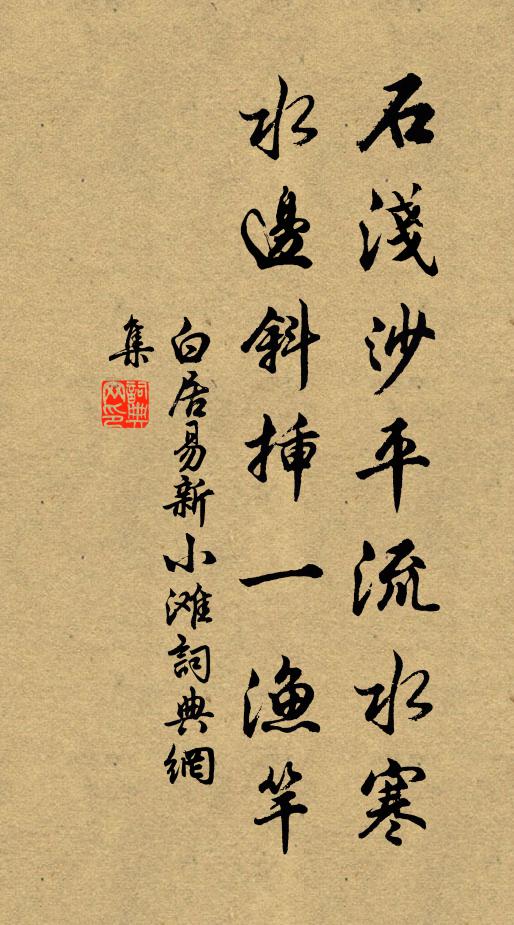 石淺沙平流水寒
水邊斜插一漁竿
白居易新小滩詞典網
集
詞典
网印